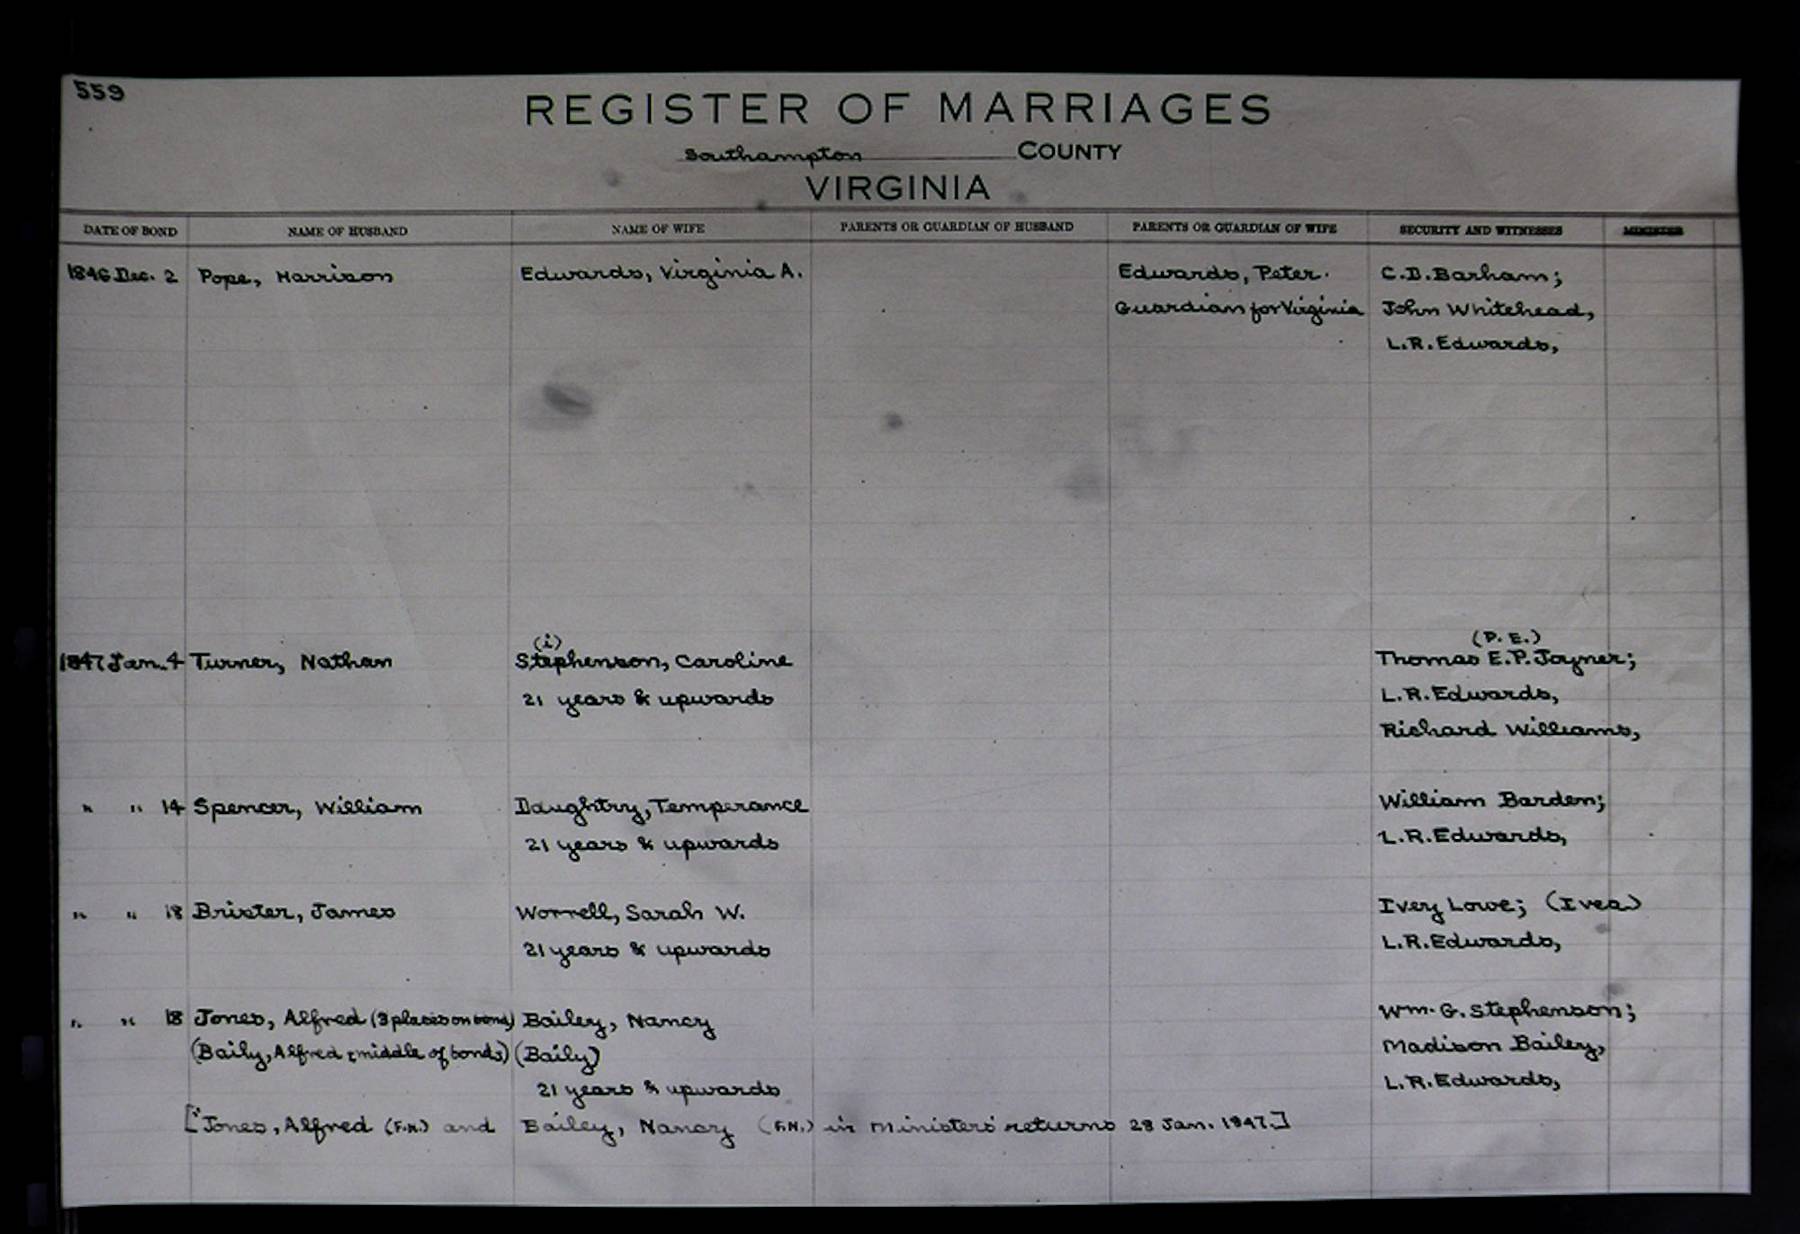 559
REGISTER OF MARRIAGES
Southampton COUNTY
VIRGINIA
DATE OF BOND NAME OF HUSBAND NAME OF WIFE PARENTS OR GUARDIAN OF HUSBAND PARENTS OR GUARDIAN OF WIFE SECURITY AND WITNESSES MINISTER
1846 Dec. 2 Pope, Harrison Edwards, Virginia A. Edwards, Peter. C.D. Barham;
Guardian for Virginia John Whitehead,
L.R. Edwards,
(i) (P. E.)
1847 Jan. 4 Turner, Nathan Stephenson, Caroline Thomas E.P. Joyner;
21 years & upwards L.R. Edwards,
Richard Williams,
" " 14 Spencer, William Daughtry, Temperance William Barden;
21 years & upwards L.R. Edwards,
" " 18 Brister, James Worrell, Sarah W. Ivery Lowe; (Ivea)
21 years & upwards L.R. Edwards,
" " 18 Jones, Alfred (3 places on bond) Bailey, Nancy Wm. G. Stephenson;
(Baily, Alfred middle of bonds) (Baily) Madison Bailey,
21 years & upwards L.R. Edwards,
["Jones, Alfred (F.N.) and Bailey, Nancy (F.N.) in Ministers' returns 28 Jan. 1847.]